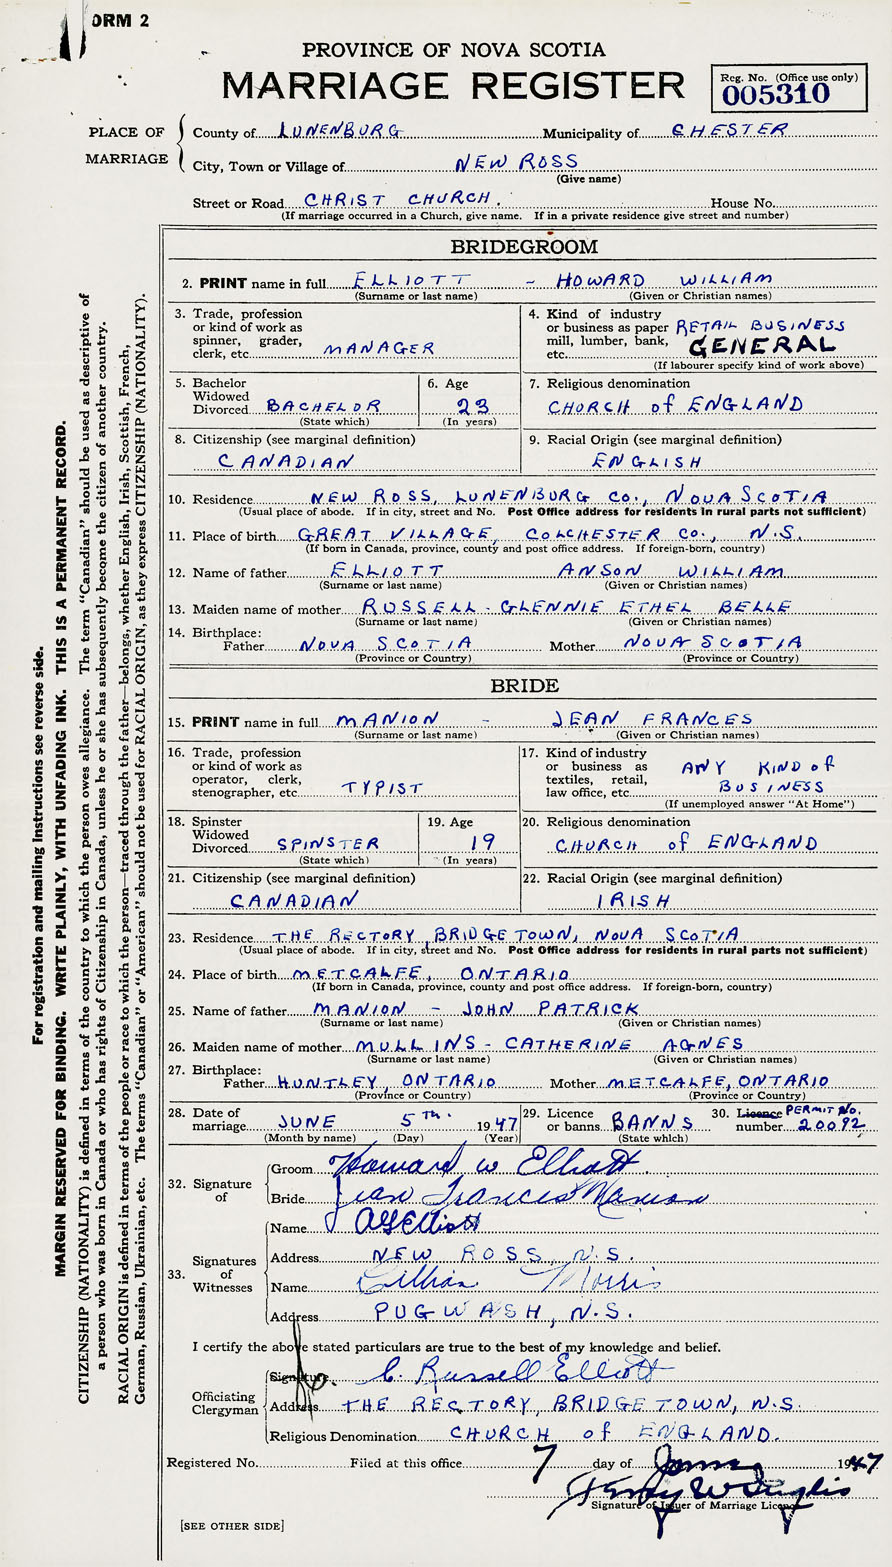 ORM 2
PROVINCE OF NOVA SCOTIA
MARRIAGE REGISTER
Reg. No. (Office use only)
005310
PLACE OF MARRIAGE
County of LUNENBURG Municipality of CHESTER
City, Town or Village of NEW ROSS
(Give name)
Street or Road CHRIST CHURCH. House No.
(If marriage occurred in a Church, give name. If in a private residence give street and number)
BRIDEGROOM
2. PRINT name in full ELLIOTT - HOWARD WILLIAM
(Surname or last name) (Given or Christian names)
3. Trade, profession
or kind of work as
spinner, grader,
clerk, etc. MANAGER
4. Kind of industry
or business as paper RETAIL BUSINESS
mill, lumber, bank,
etc. GENERAL
(If labourer specify kind of work above)
5. Bachelor
Widowed
Divorced BACHELOR
(State which)
6. Age
23
(In years)
7. Religious denomination
CHURCH of ENGLAND
8. Citizenship (see marginal definition)
CANADIAN
9. Racial Origin (see marginal definition)
ENGLISH
10. Residence NEW ROSS, LUNENBURG CO., NOVA SCOTIA
(Usual place of abode. If in city, street and No. Post Office address for residents in rural parts not sufficient)
11. Place of birth GREAT VILLAGE, COLCHESTER CO., N.S.
(If born in Canada, province, county and post office address. If foreign-born, country)
12. Name of father ELLIOTT ANSON WILLIAM
(Surname or last name) (Given or Christian names)
13. Maiden name of mother RUSSELL - GLENNIE ETHEL BELLE
(Surname or last name) (Given or Christian names)
14. Birthplace:
Father NOVA SCOTIA Mother NOVA SCOTIA
(Province or Country) (Province or Country)
BRIDE
15. PRINT name in full MANION - JEAN FRANCES
(Surname or last name) (Given or Christian names)
16. Trade, profession
or kind of work as
operator, clerk,
stenographer, etc. TYPIST
17. Kind of industry
or business as ANY KIND of
textiles, retail,
law office, etc. BUSINESS
(If unemployed answer "At Home")
18. Spinster
Widowed
Divorced SPINSTER
(State which)
19. Age
19
(In years)
20. Religious denomination
CHURCH of ENGLAND
21. Citizenship (see marginal definition)
CANADIAN
22. Racial Origin (see marginal definition)
IRISH
23. Residence THE RECTORY, BRIDGETOWN, NOVA SCOTIA
(Usual place of abode. If in city, street and No. Post Office address for residents in rural parts not sufficient)
24. Place of birth METCALFE, ONTARIO
(If born in Canada, province, county and post office address. If foreign-born, country)
25. Name of father MANION - JOHN PATRICK
(Surname or last name) (Given or Christian names)
26. Maiden name of mother MULLINS - CATHERINE AGNES
(Surname or last name) (Given or Christian names)
27. Birthplace:
Father HUNTLEY, ONTARIO Mother METCALFE, ONTARIO
(Province or Country) (Province or Country)
28. Date of
marriage JUNE 5TH. 1947
(Month by name) (Day) (Year)
29. Licence
or banns BANNS
(State which)
30. Licence PERMIT NO.
number 20092
32. Signature of
Groom Howard W Elliott.
Bride Jean Frances Manion
33. Signatures of Witnesses
Name AG Elliott
Address NEW ROSS, N.S.
Name Lillian Morris
Address PUGWASH, N.S.
I certify the above stated particulars are true to the best of my knowledge and belief.
Officiating Clergyman
Signature C. Russell Elliott
Address THE RECTORY, BRIDGETOWN, N.S.
Religious Denomination CHURCH of ENGLAND.
Registered No. Filed at this office 7 day of June 1947
Signature of Issuer of Marriage Licence
[SEE OTHER SIDE]
For registration and mailing instructions see reverse side.
MARGIN RESERVED FOR BINDING. WRITE PLAINLY, WITH UNFADING INK. THIS IS A PERMANENT RECORD.
CITIZENSHIP (NATIONALITY) is defined in terms of the country to which the person owes allegiance. The term "Canadian" should be used as descriptive of
a person who was born in Canada or who has rights of Citizenship in Canada, unless he or she has subsequently become the citizen of another country.
RACIAL ORIGIN is defined in terms of the people or race to which the person—traced through the father—belongs, whether English, Irish, Scottish, French,
German, Russian, Ukrainian, etc. The terms "Canadian" or "American" should not be used for RACIAL ORIGIN, as they express CITIZENSHIP (NATIONALITY).